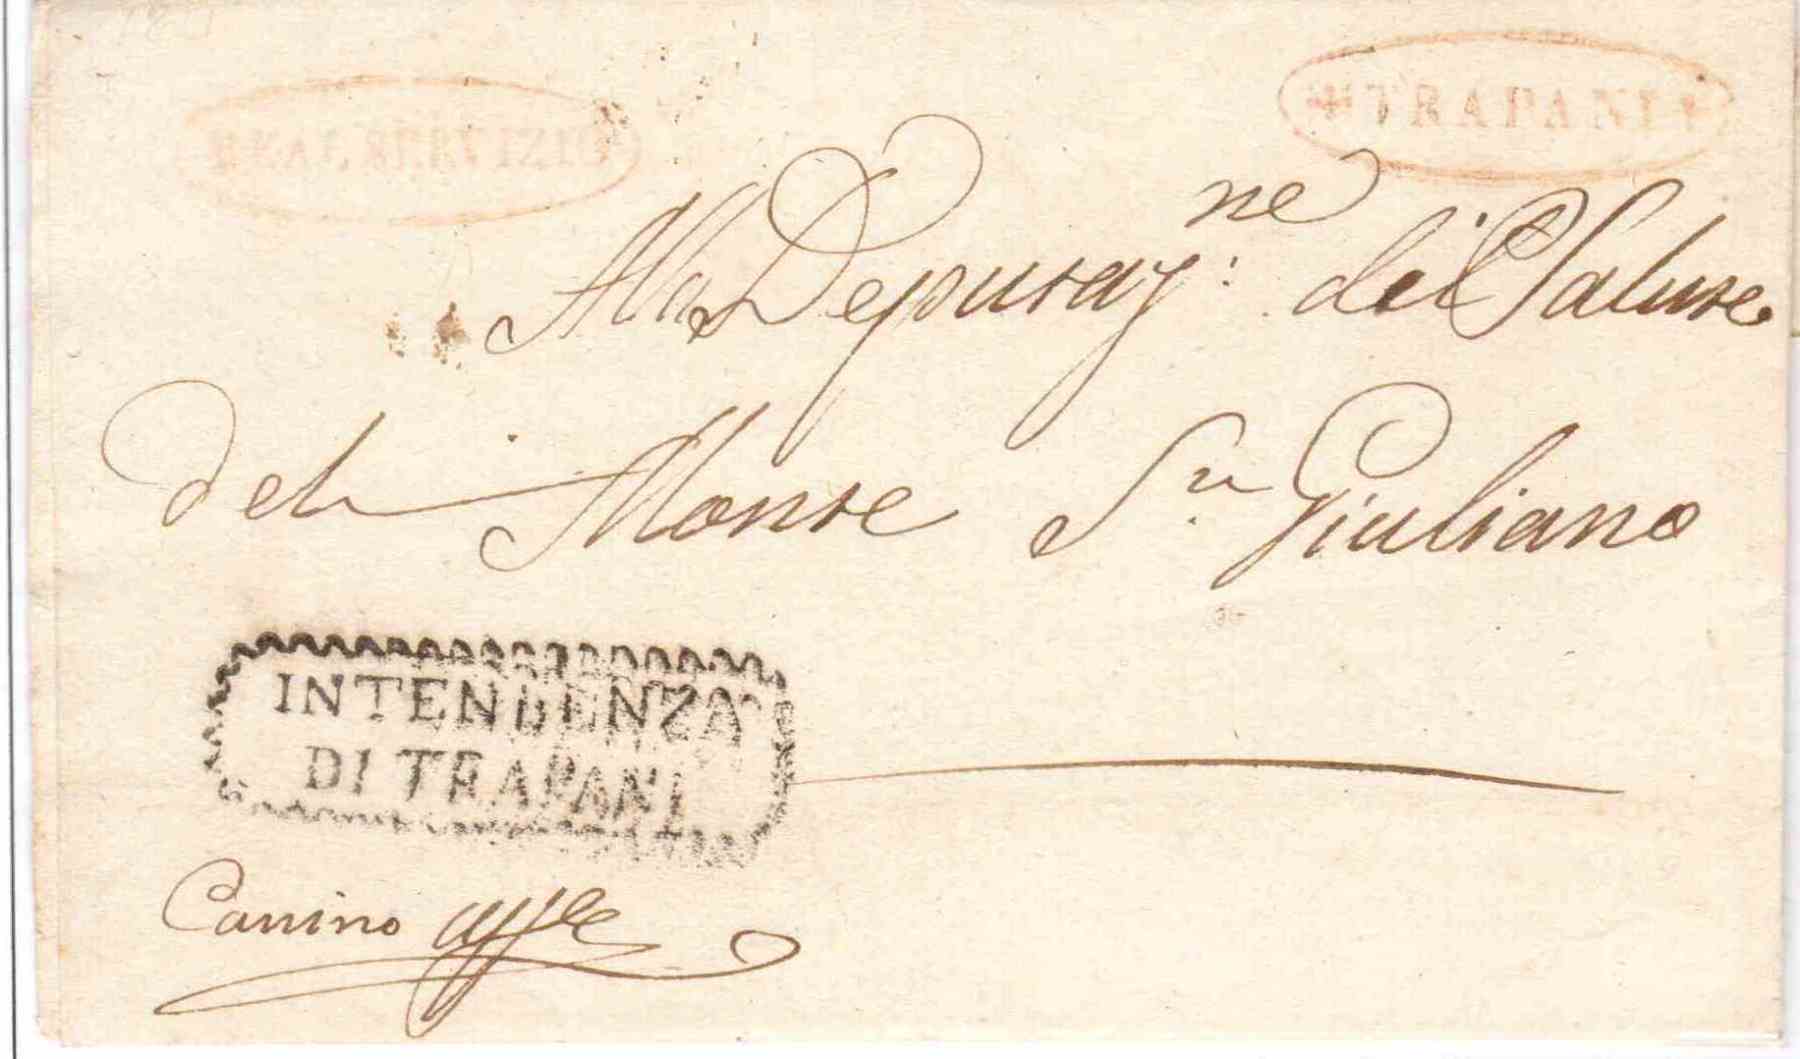 REAL SERVIZIO
TRAPANI
Alla Deputaz:ne di Salute
del Monte Sn Giuliano
INTENDENZA
DI TRAPANI
Canino